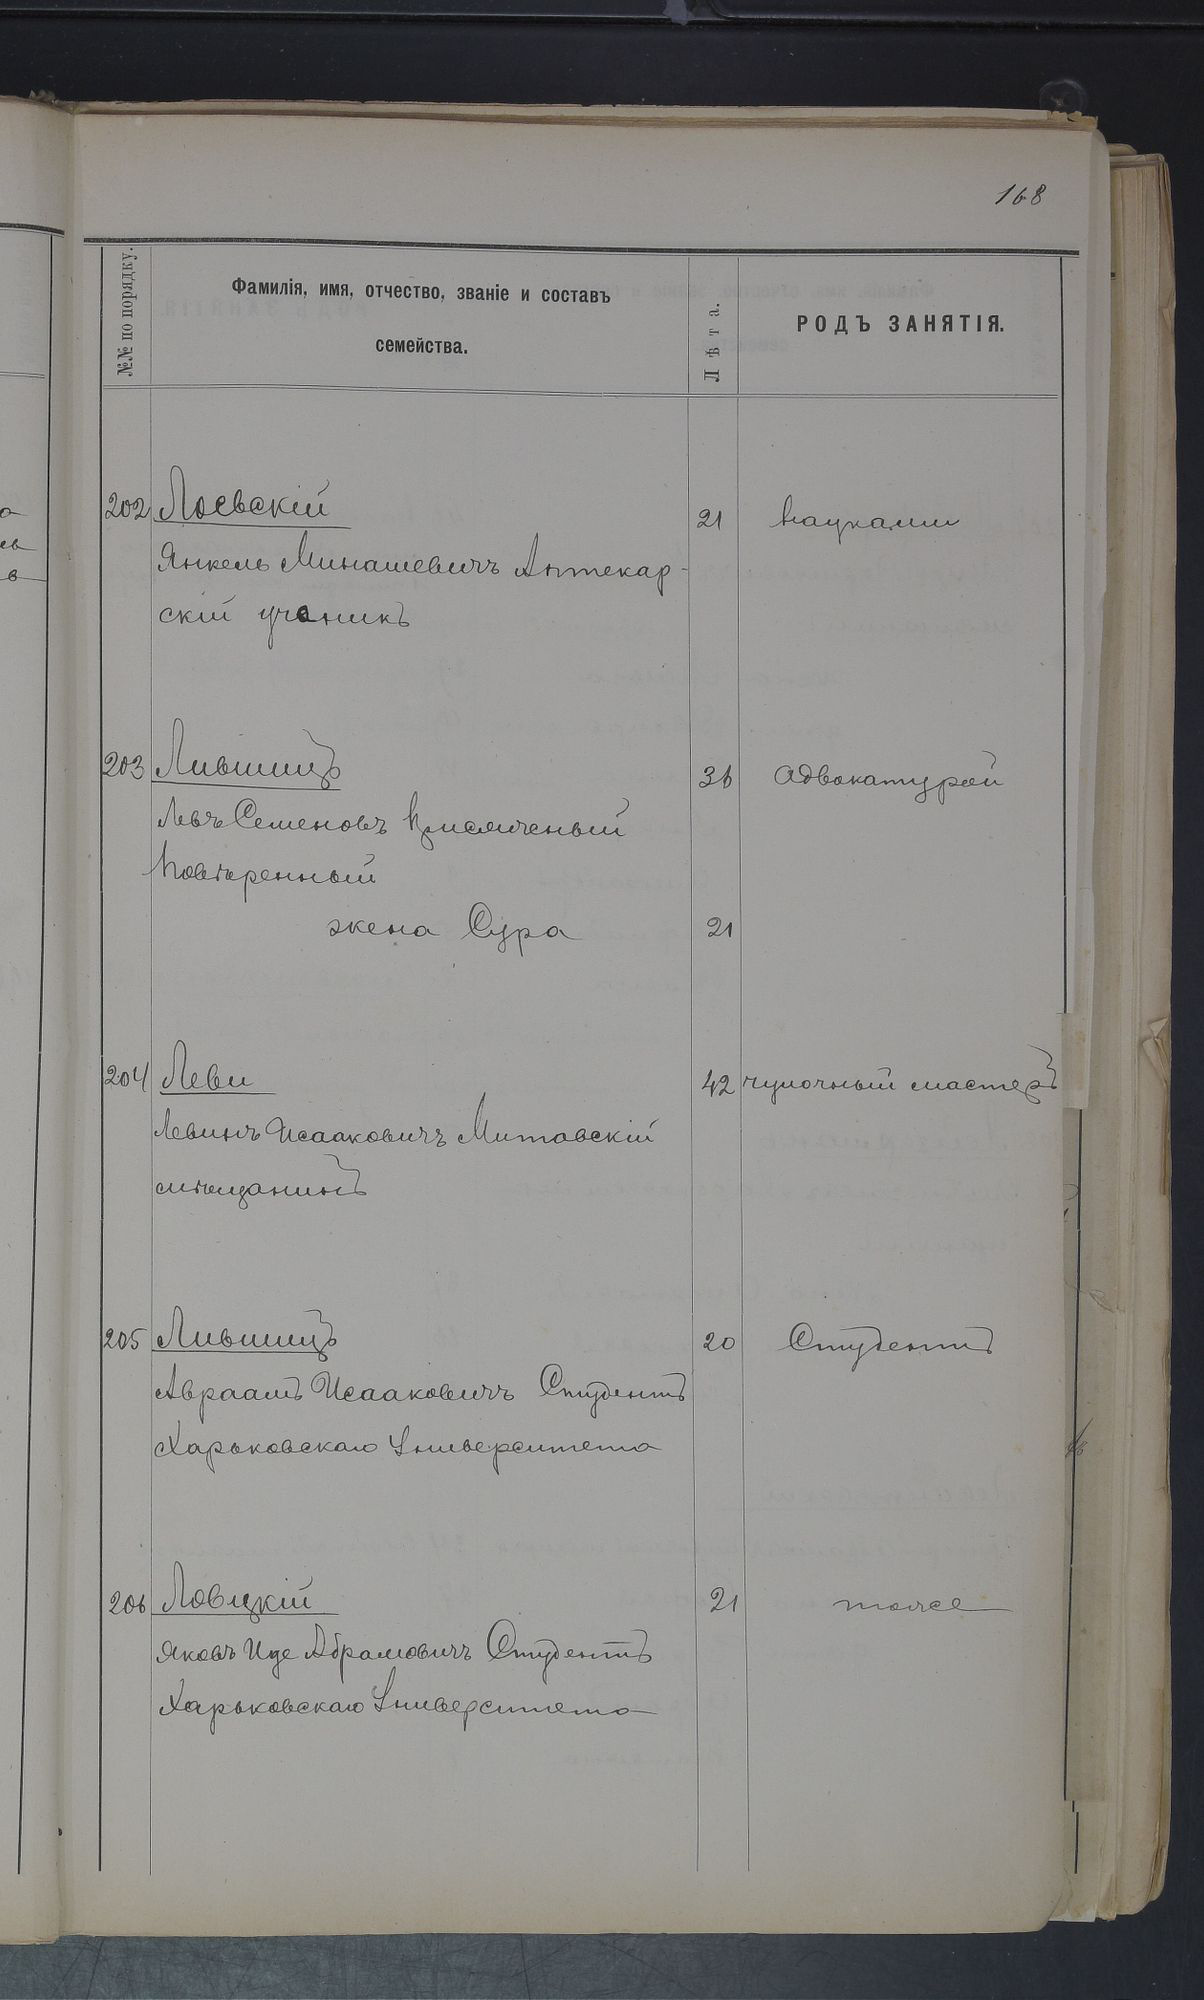 168
№№ по порядку.
Фамилія, имя, отчество, званіе и составъ
семейства.
Лѣта.
РОДЪ ЗАНЯТІЯ.
202 Лоевскій 21 Науками
Янкель Минашевичъ Аптекар-
скій ученикъ
203 Лившицъ 36 Адвокатурой
Левъ Семеновъ Присяжный
Повѣренный
жена Сура 21
204 Леви 42 чулочный мастеръ
Левинъ Исааковичъ Митавскій
мѣщанинъ
205 Лившицъ 20 Студентъ
Авраамъ Исааковичъ Студентъ
Харьковскаго Университета
206 Ловцкій 21 тоже
Яковъ Иде Абрамовичъ Студентъ
Харьковскаго Университета